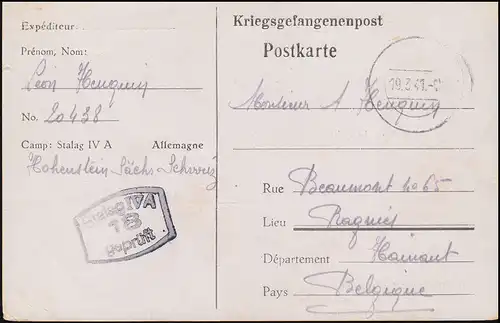 Expéditeur:
Prénom, Nom:
Léon Henquin
No. 20428
Camp: Stalag IV A Allemagne
Hohenstein Sächs Schweiz
Stalag IVA
18
geprüft
Kriegsgefangenenpost
Postkarte
19.3.41.
Monsieur A Henquin
Rue Beaumont no 65
Lieu Ragnies
Département Hainaut
Pays Belgique